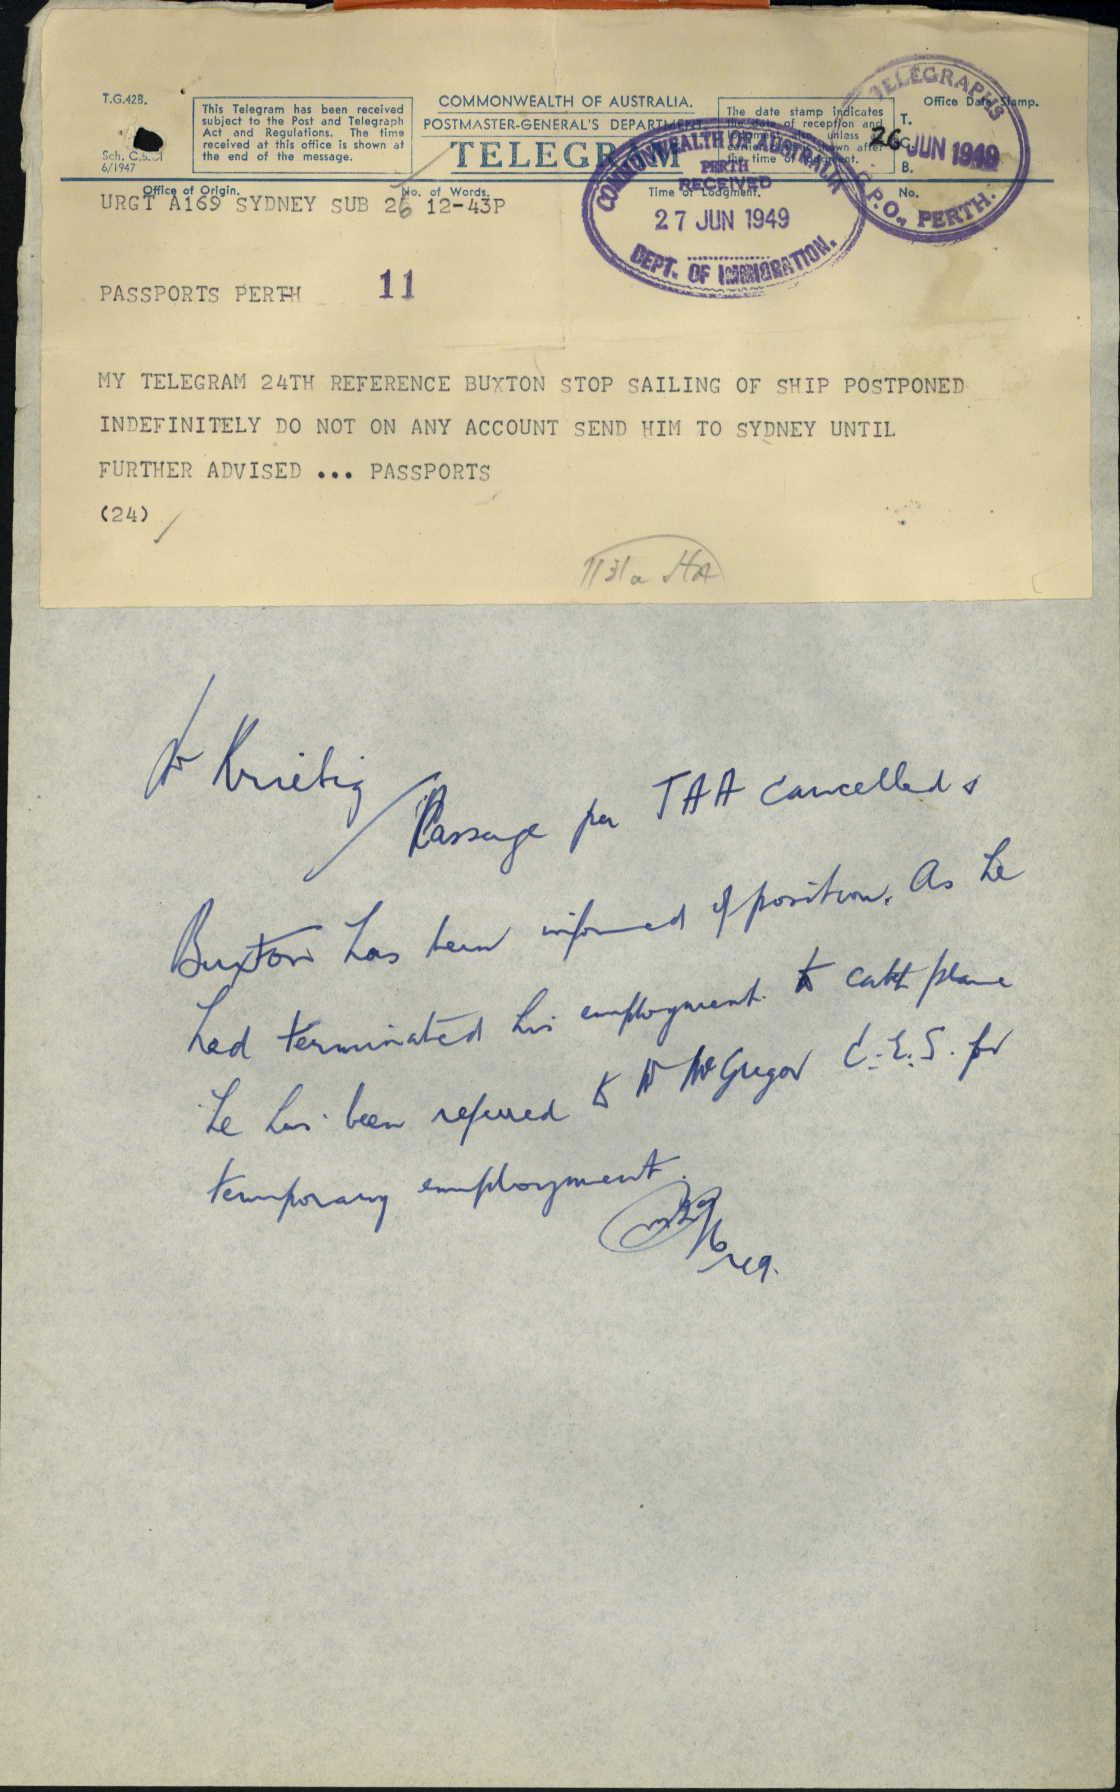 T.G.42B.
Sch. C.5.
6/1947
This Telegram has been received
subject to the Post and Telegraph
Act and Regulations. The time
received at this office is shown at
the end of the message.
COMMONWEALTH OF AUSTRALIA.
POSTMASTER-GENERAL'S DEPARTMENT
TELEGRAM
The date stamp indicates
the date of reception and
lodgment also unless
shown after
the time of lodgment.
Office Date Stamp.
T.
C.
B.
No.
TELEGRAPHS
26 JUN 1949
G.P.O., PERTH.
Office of Origin.
No. of Words.
Time of Lodgment.
COMMONWEALTH OF AUSTRALIA
PERTH
RECEIVED
27 JUN 1949
DEPT. OF IMMIGRATION.
URGT A169 SYDNEY SUB 26 12-43P
PASSPORTS PERTH 11
MY TELEGRAM 24TH REFERENCE BUXTON STOP SAILING OF SHIP POSTPONED
INDEFINITELY DO NOT ON ANY ACCOUNT SEND HIM TO SYDNEY UNTIL
FURTHER ADVISED ... PASSPORTS
(24)
1131a
Mr Krietig
Passage per TAA cancelled &
Buxton has been informed of position. As he
had terminated his employment to catch plane
he has been referred to Mr McGregor C.E.S. for
temporary employment.